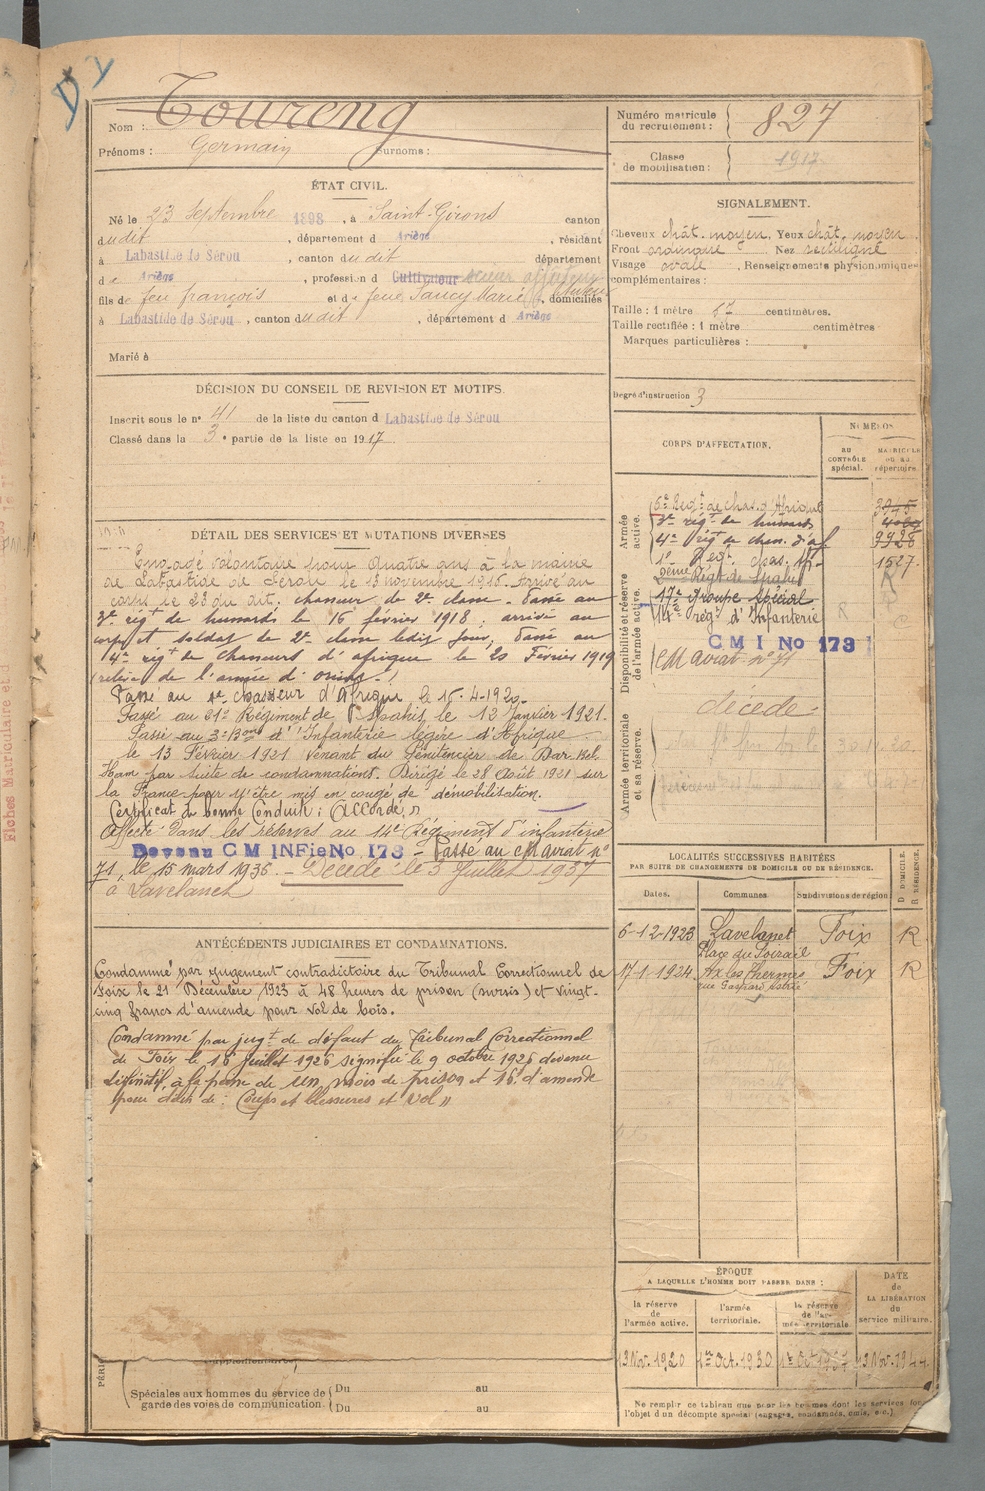 DY
Nom : Toureng
Prénoms : Germain Surnoms :
Numéro matricule du recrutement : 827
Classe de mobilisation : 1917
ÉTAT CIVIL.
Né le 23 Septembre 1898, à Saint-Girons canton
dudit, département d Ariège, résidant
à Labastide de Sérou, canton dudit département
d Ariège, profession de Cultivateur
fils de feu françois et de feue Saucy Marie, domiciliés
à Labastide de Sérou, canton dudit, département d Ariège
Marié à
SIGNALEMENT.
Cheveux chât. moyen, Yeux chât. moyen
Front ordinaire Nez rectiligne
Visage ovale, Renseignements physionomiques
complémentaires :
Taille : 1 mètre 57 centimètres.
Taille rectifiée : 1 mètre centimètres
Marques particulières :
Degré d'instruction 3
DÉCISION DU CONSEIL DE REVISION ET MOTIFS.
Inscrit sous le n° 41 de la liste du canton d Labastide de Sérou
Classé dans la 3e partie de la liste en 1917
DÉTAIL DES SERVICES ET MUTATIONS DIVERSES
Engagé volontaire pour Quatre ans à la mairie
de Labastide de Sérou le 13 novembre 1916. Arrivé au
corps le 23 du dit. chasseur de 2e classe. Passé au
3e régt de hussards le 16 février 1918 ; arrivé au
corps et soldat de 2e classe ledit jour, Passé au
4e régt de chasseurs d'afrique le 20 Février 1919
(relève de l'armée d'orient.)
Passé au 1e chasseur d'Afrique le 15-4-1920.
Passé au 21e Régiment de Spahis le 12 Janvier 1921.
Passé au 3e Bon d'Infanterie légère d'Afrique
le 13 Février 1921 venant du Pénitencier de Dar Bel
Ham par suite de condamnations. Dirigé le 28 Août 1921 sur
la France pour y être mis en congé de démobilisation.
Certificat de bonne Conduite : Accordé
Affecté dans les réserves au 14e Régiment d'infanterie
Devenu C M INFie No 173 - Passé au CM aviat n°
71, le 15 mars 1936. - Décédé le 3 Juillet 1937
à Lavelanet
CORPS D'AFFECTATION.
NUMÉROS
AU CONTRÔLE spécial.
MATRICULE ou au répertoire.
Armée active.
6e Régt de chas. d'Afrique 3945
3e régt de hussards
4e régt de chass. d'af 9928
1e Régt. chas. af. 1527
Disponibilité et réserve de l'armée active.
2ème Régt de Spahis
17e groupe spécial
14e régt d'Infanterie
C M I No 173
CM aviat n° 71
Armée territoriale et sa réserve.
décédé
LOCALITÉS SUCCESSIVES HABITÉES
PAR SUITE DE CHANGEMENTS DE DOMICILE OU DE RÉSIDENCE.
Dates. Communes Subdivisions de région D DOMICILE. R RÉSIDENCE.
6-12-1923 Lavelanet Foix R
17-1-1924 Ax les Thermes Foix R
ANTÉCÉDENTS JUDICIAIRES ET CONDAMNATIONS.
Condamné par jugement contradictoire du Tribunal Correctionnel de
Foix le 21 Décembre 1923 à 48 heures de prison (sursis) et vingt-
cinq francs d'amende pour vol de bois.
Condamné par jugt de défaut du Tribunal Correctionnel
de Foix le 16 Juillet 1926 signifié le 9 octobre 1926 devenu
définitif, à la peine de un mois de prison et 16f d'amende
pour délit de : Coups et blessures et vol
ÉPOQUE
A LAQUELLE L'HOMME DOIT PASSER DANS :
la réserve de l'armée active. l'armée territoriale. la réserve de l'armée territoriale.
DATE de LA LIBÉRATION du service militaire.
13 Nov. 1920 1er Oct. 1930 13 Nov. 1944
Spéciales aux hommes du service de garde des voies de communication
Du au
Du au
Ne remplir ce tableau que pour les hommes dont les services font
l'objet d'un décompte spécial (engagés, condamnés, omis, etc.)
Fiches Matriculaire et